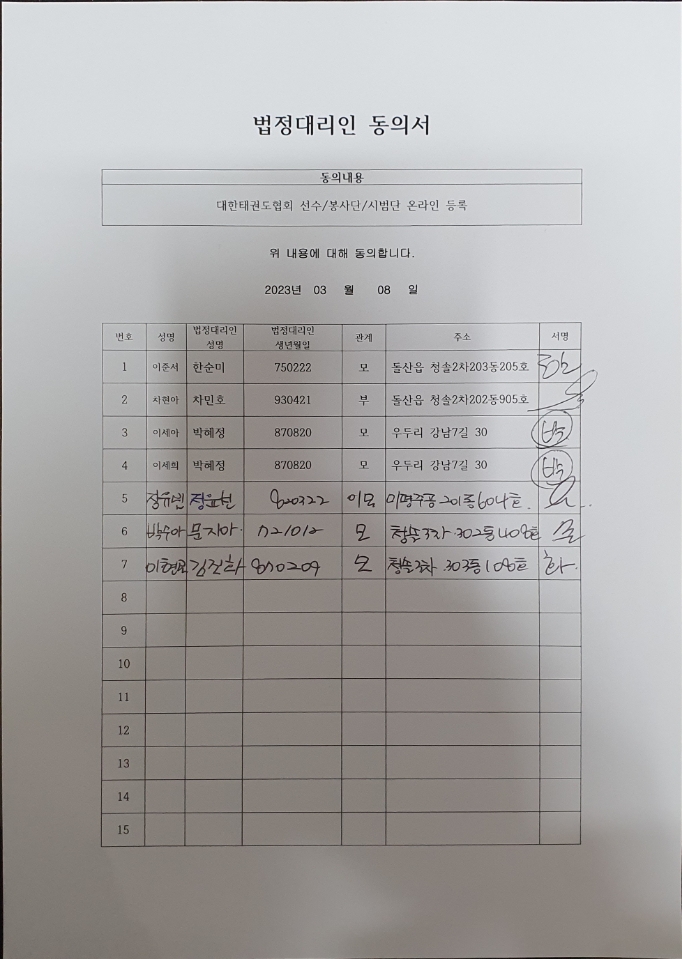 법정대리인 동의서
동의내용
대한태권도협회 선수/봉사단/시범단 온라인 등록
위 내용에 대해 동의합니다.
2023년 03 월 08 일
번호 성명 법정대리인 성명 법정대리인 생년월일 관계 주소 서명
1 이준서 한순미 750222 모 돌산읍 청솔2차203동205호
2 차현아 차민호 930421 부 돌산읍 청솔2차202동905호
3 이세아 박혜정 870820 모 우두리 강남7길 30 박
4 이세희 박혜정 870820 모 우두리 강남7길 30 박
5 정윤선 820322 이모 미평주공 201동604호
6 박수아 문지아 721012 모 청솔3차 302동408호
7 김진화 870209 모 청솔3차 303동108호 화
8
9
10
11
12
13
14
15